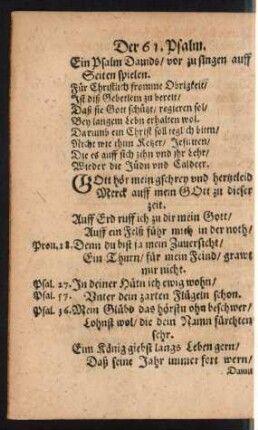 Der 61. Psalm.
Ein Psalm Dauids / vor zu singen auff
Seiten spielen.
Für Christlich fromme Obrigkeit /
Ist diß Gebetlein zu bereit /
Daß sie Gott schütz / regieren sol /
Bey langem Lebn erhalten wol.
Darumb ein Christ soll teglich bittn /
Nicht wie ihun Ketzer / Jesuiten /
Die es auff sich zihn vnd ihr Lehr /
Wieder die Jüdn vnd Caldeer.
GOtt hör mein gschrey vnd hertzleid
Merck auff mein GOtt zu dieser
zeit.
Auff Erd ruff ich zu dir mein Gott /
Auff ein Felß führ mich in der noth /
Prou. 18. Denn du bist ja mein Zuuersicht /
Ein Thurn / für mein Feind / grawt
mir nicht.
Psal. 27. In deiner Hüttn ich ewig wohn /
Psal. 57. Vnter dein zarten Flügeln schon.
Psal. 36. Mein Glübd das hörstu ohn beschwer /
Lohnst wol / die dein Namn fürchten
sehr.
Eim König giebst langs Leben gern /
Daß seine Jahr immer fort wern /
Damit